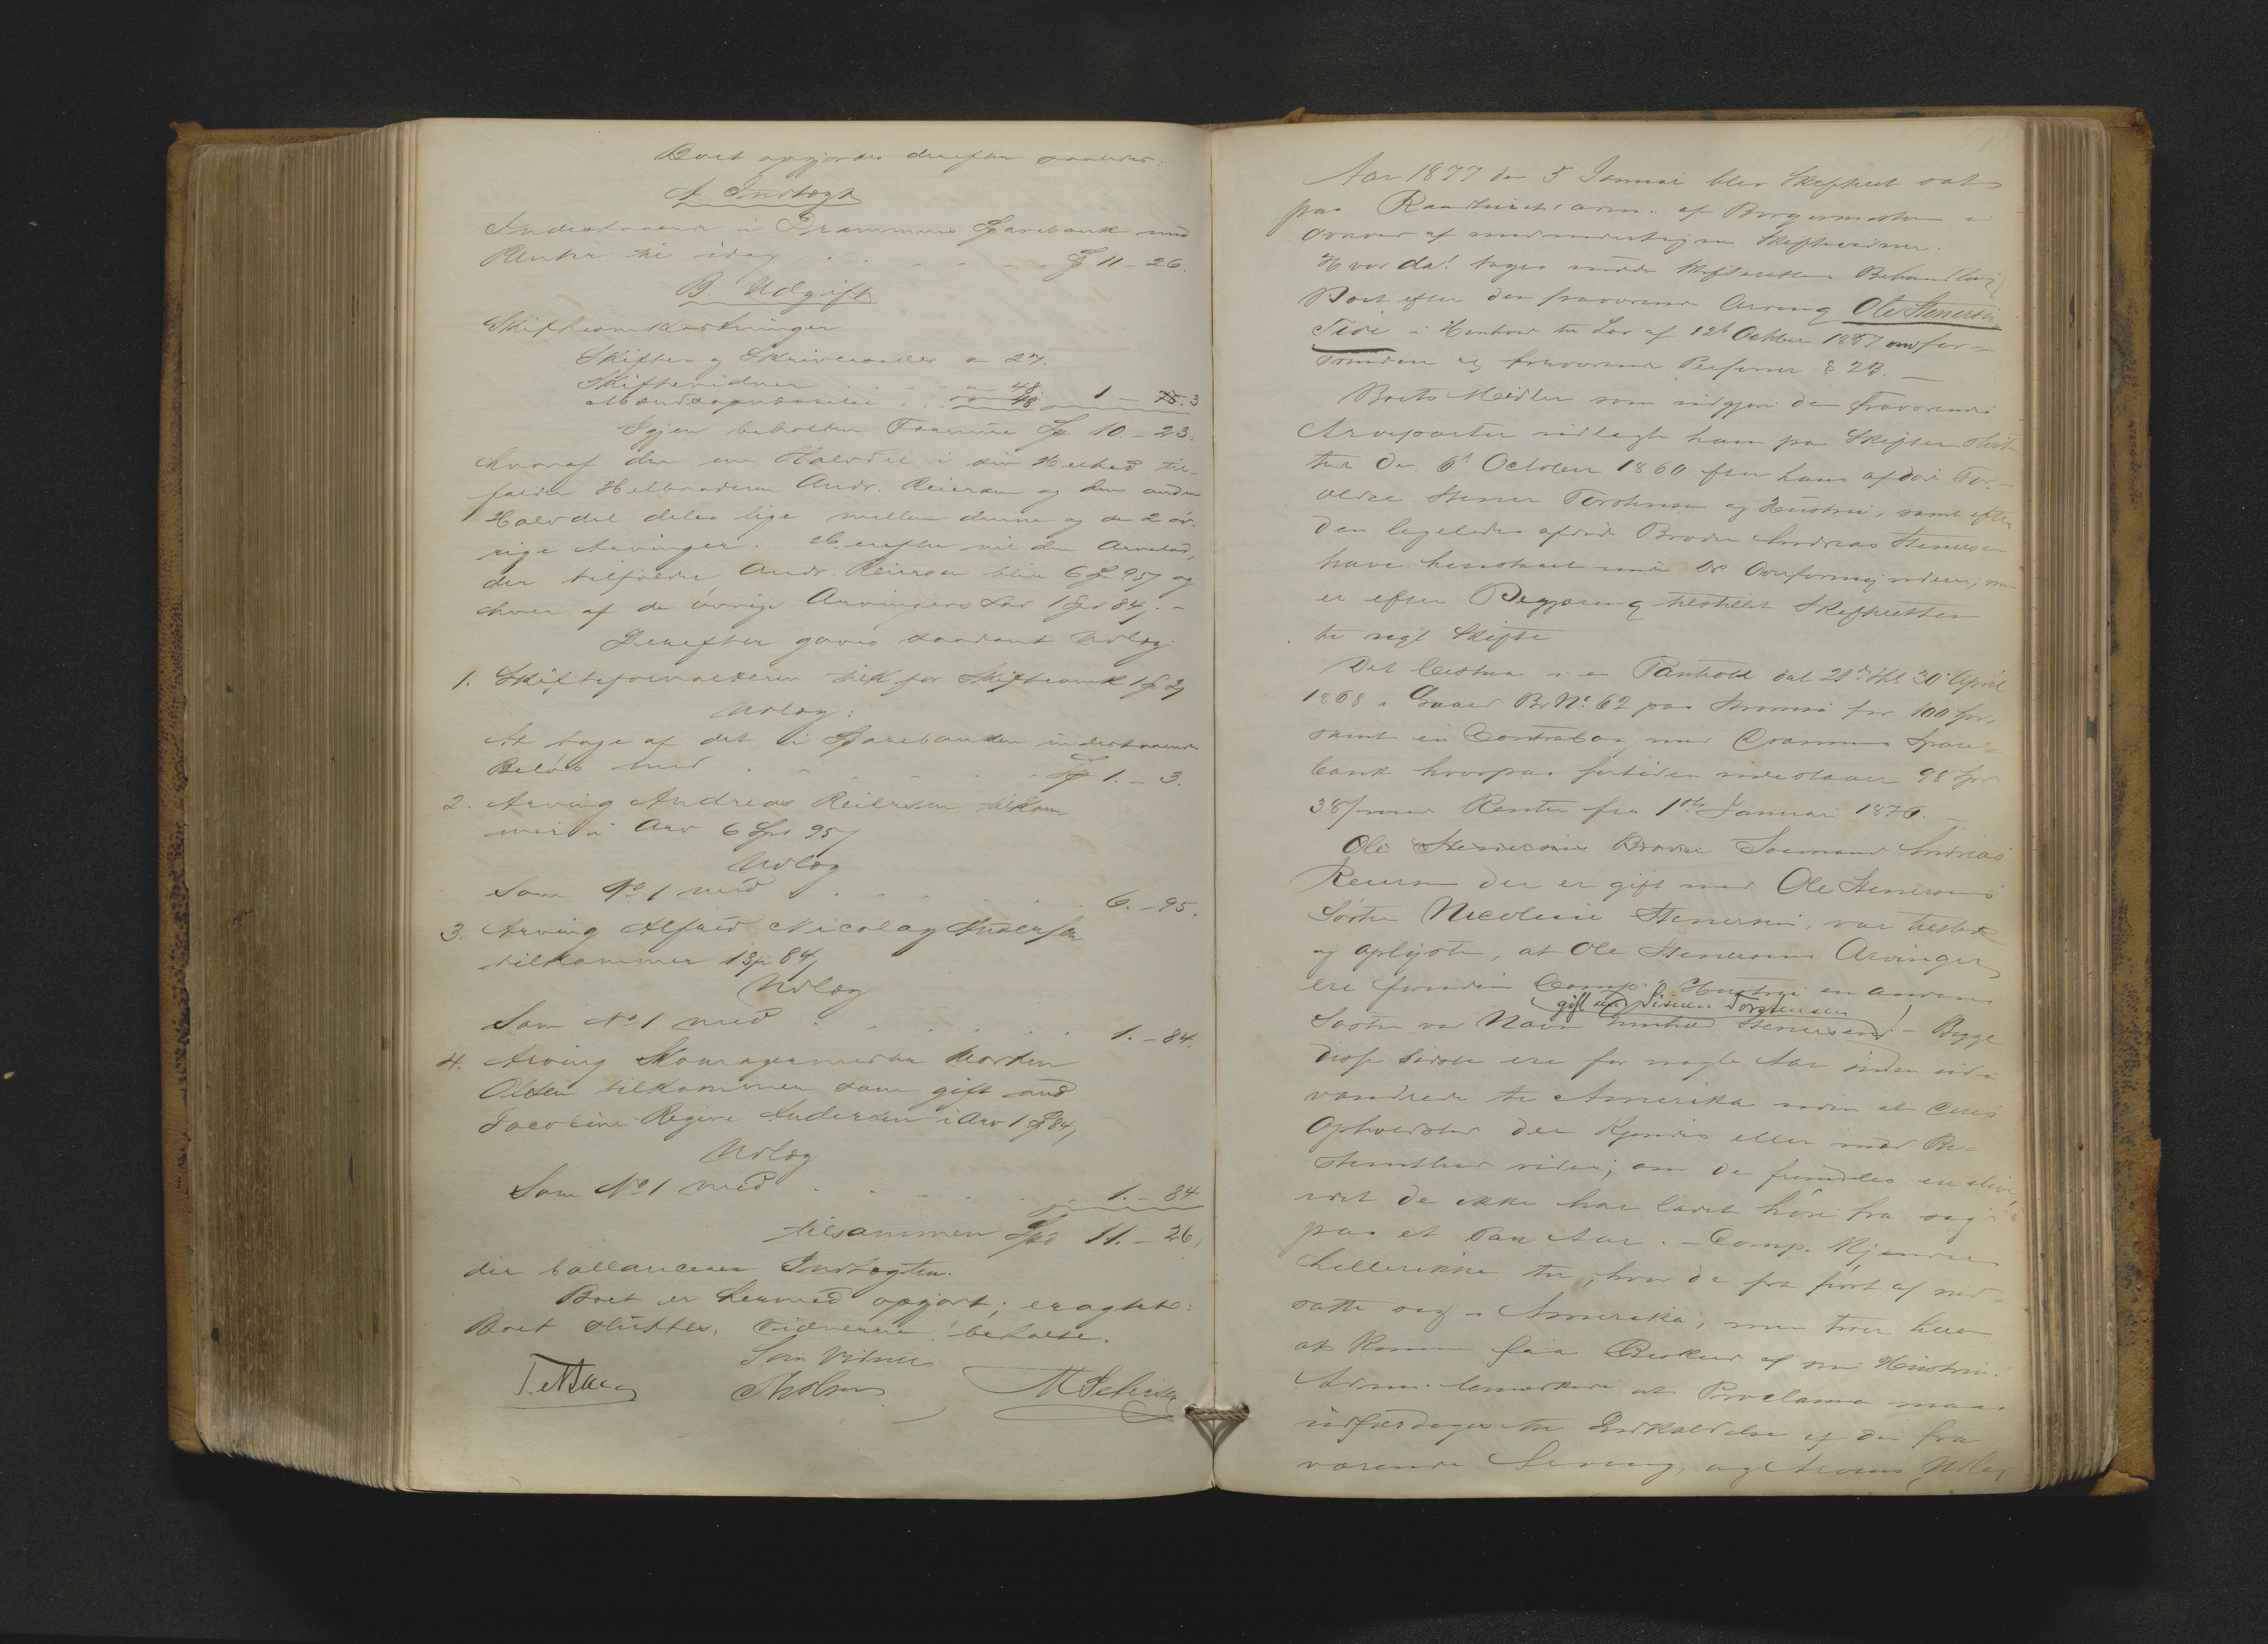 Boet opgjordes derefter saaledes:
A. Indtægt
Indestaaende i Drammens Sparebank med
Renter til idag . . . . . . Sp 11 – 26.
B. Udgift
Skifteomkostninger
Skifte- og Skriver a 27.
Skiftevidner . . . . a 48.
48 1 – 3
Igjen beholden Formue Sp 10. – 23.
hvoraf den ene Halvdel i sin Helhed til-
falder Helbroderen Andr. Reiersen og den anden
Halvdel deles lige mellem denne og de 2 öv-
rige Arvinger. Herefter vil den Arvelod,
der tilfalder Andr. Reiersen blive 6 Sp 95 og
hver af de övrige Arvingers Lod 1 Spd 84. –
Derefter gaves saadant Udlæg:
1. Skifteforvalteren tilk for Skifteomk 1 Sp 3
Udlæg:
At tage af det i Sparebanken indestaaende
Belöb med . . . . . . Sp 1. – 3.
2. Arving Andreas Reiersen tilkom-
mer i Arv 6 Spd 95
Udlæg
Som No 1 med . . . . . . 6. – 95.
3. Arving Alfred Nicolay Andersen
tilkommer 1 Sp 84
Udlæg
Som No 1 med . . . . . . 1. – 84.
4. Arving Morten
Olsen tilkommer som gift med
Jacobine Regine Andersen i Arv 1 Sp 84,
Udlæg
Som No 1 med . . . . . . 1. – 84
tilsammen Spd 11. – 26,
der ballancerer Indtægten.
Boet er hermed opgjort; eragtet:
Boet sluttes. Vidnerne betalte.
Som Vidner
M Petersen
Aar 1877 den 5 Januar blev Skifteret sat
paa af Borgermesteren i
Overvær af medundertegnede Skiftevidner.
Hvorda! toges under Skifterettens Behandling
Boet efter den fraværende Arving Ole Stenersen
i Henhold til Lov af 12te October 1857 om for-
og fraværende Personer § 23. –
Boets Midler som udgjöre den Fraværendes
Arveparter udlagt ham paa Skiftet sluttet
den 6te October 1860 efter hans afdöde For-
ældre Stener Torstensen og Hustru, samt efter
den ligeledes afdöde Broder Andreas Stenersen
have henstaaet under Ds Overformynderi, men
er efter Begjæring tilstillet Skifteretten
til vedt Skifte
Det bestaar i en Pantobl dat 21de thl 30 April
1868 i Gaard Br No 62 paa Strömsö for 100 Spd,
samt en Contrabog med Drammens Spare-
bank hvorpaa fortiden indestaaer 98 Spd
38 med Renter fra 1ste Januar 1876. –
Ole Stenersens Broder Sömand Andreas
Reiersen der er gift med Ole Stenersens
Söster Nicoline Stenersen, var tilstede
og oplyste, at Ole Stenersens Arvinger
ere foruden Comp. Hustru en anden
gift med Simen Torstensen
Söster ved Navn Stenersen. – Begge
disse sidste ere for nogle Aar siden ud-
vandrede til Amerika uden at deres
Opholdssted der kjendes eller med Be-
stemthed vides, om de fremdeles ere ilive,
idet de ikke har ladet höre fra sig
paa et Par Aar. – Comp. kjender
hellerikke til, hvor de fra först af ned-
satte sig i Amerika, men troer herom
at kunne faa Besked af sin Hustru.
Adm. bemærkede at Proclama maa
udfærdiges til Indkaldelse af den fra-
værende Arving, Udlæg